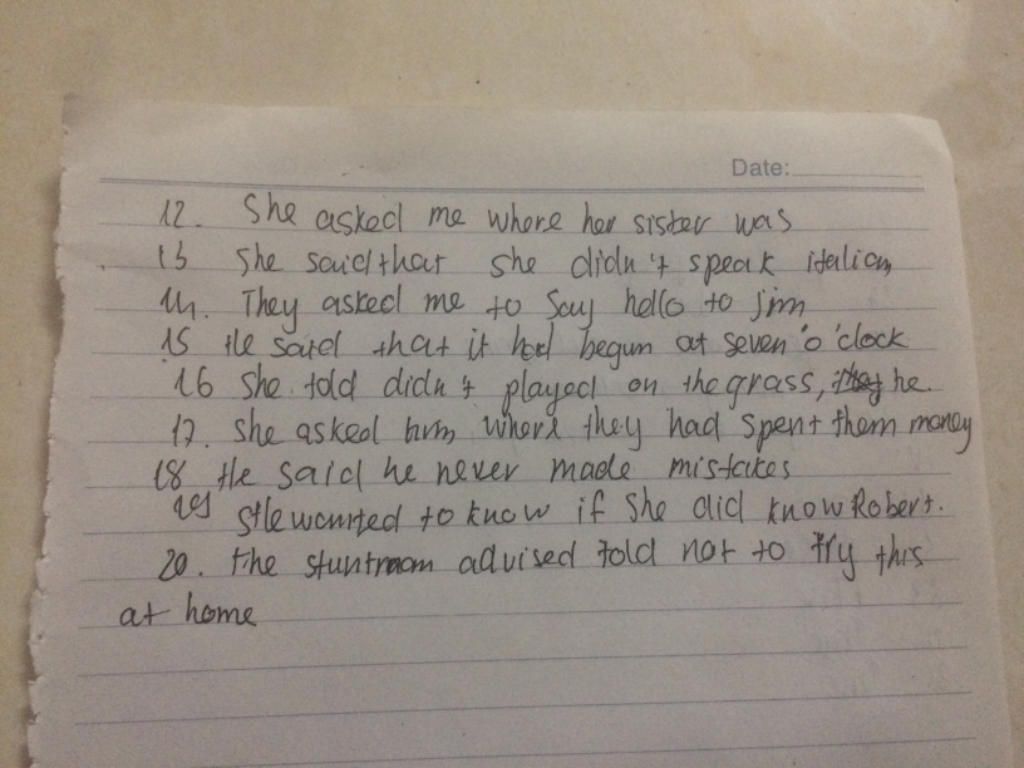 Date:
12. She asked me where her sister was
13 She said that she didn't speak italian
14. They asked me to Say hello to jim
15 He said that it had begun at seven 'o 'clock
16 She told didn't played on the grass, he.
17. She asked him where they had spent them money
18 He said he never made mistakes
19 She wanted to know if she did know Robert.
20. The stuntmam advised told not to Try this
at home